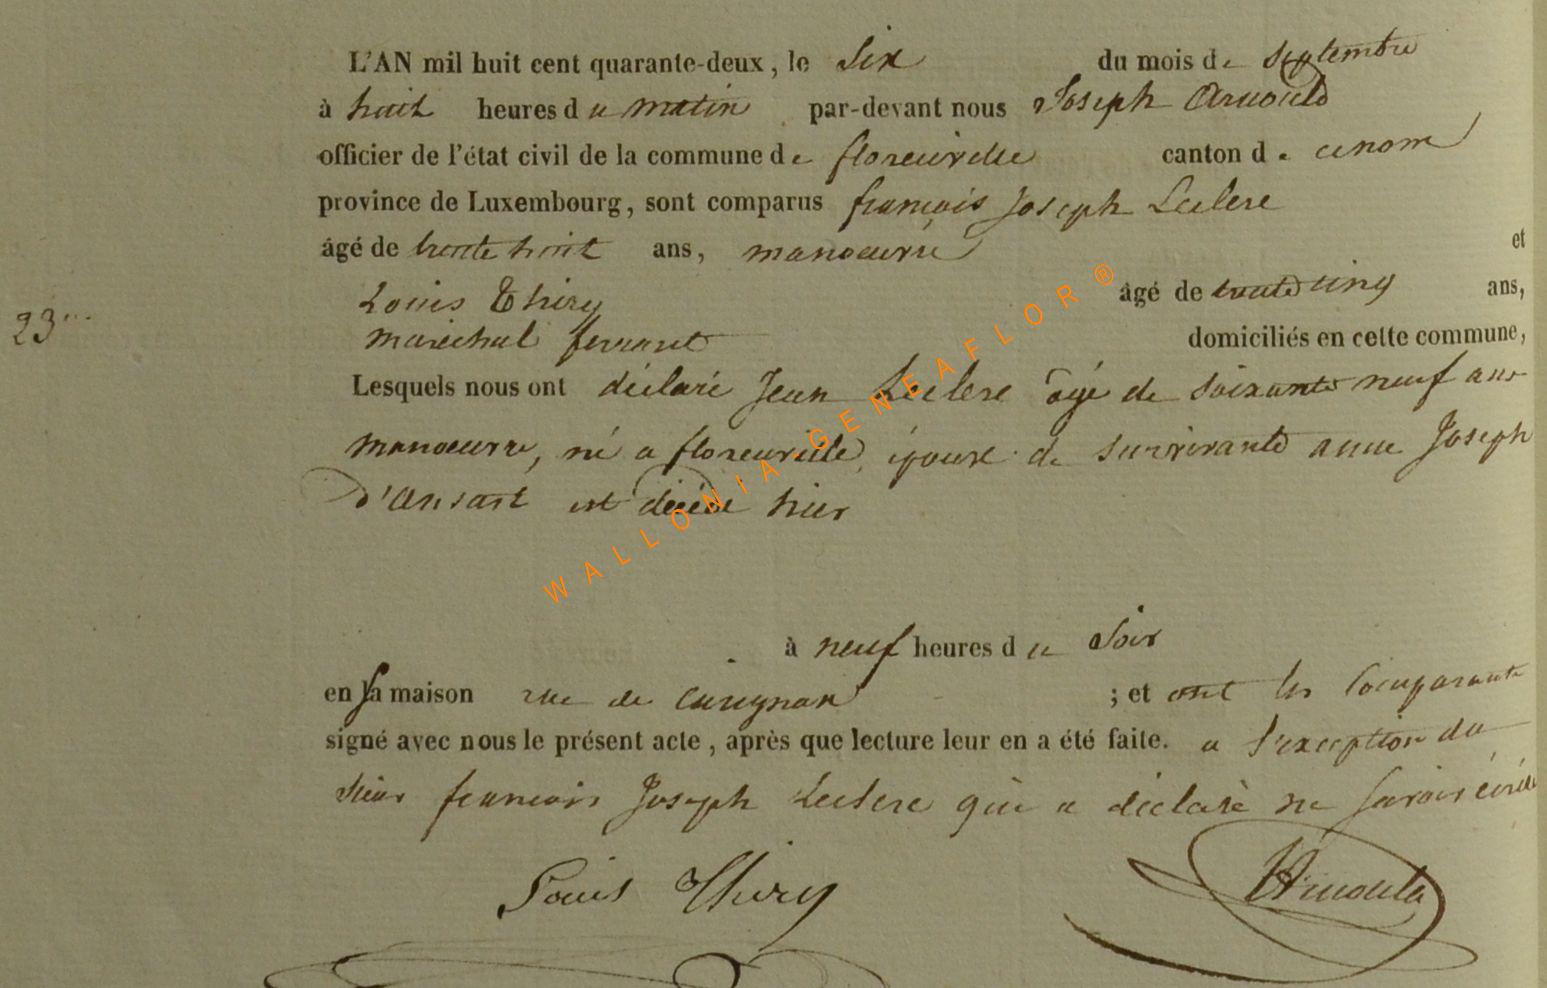 L'AN mil huit cent quarante-deux, le six du mois de septembre
à huit heures du matin par-devant nous Joseph Arnould
officier de l'état civil de la commune de florenville canton de ce nom
province de Luxembourg, sont comparus françois Joseph Leclere
âgé de trente huit ans, manoeuvre et
Louis Thiry âgé de trente cinq ans,
23
maréchal ferrant domiciliés en cette commune,
Lesquels nous ont déclaré Jean Leclere âgé de soixante neuf ans
manoeuvre, né a florenville, époux de survivante anne Joseph
D'Ansart est décédé hier
à neuf heures du Soir
en sa maison rue de carignan ; et ont les Comparants
signé avec nous le présent acte, après que lecture leur en a été faite. a l'exception du
sieur françois Joseph Leclere qui a déclaré ne savoir écrire
Louis Thiry Arnould
WALLONIA-GENEAFLOR®